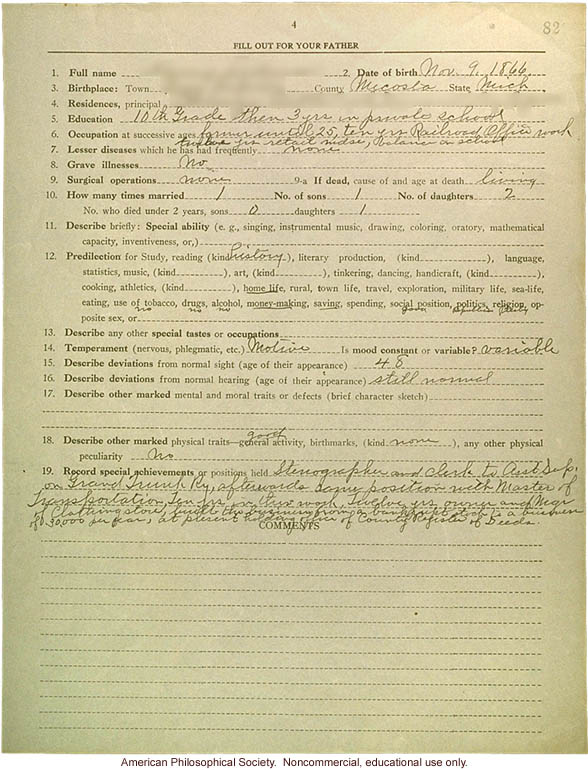 4
82
FILL OUT FOR YOUR FATHER
1. Full name 2. Date of birth Nov. 9, 1866
3. Birthplace: Town County Mecosta State Mich
4. Residences, principal
5. Education 10th Grade then 3 yrs in private school
6. Occupation at successive ages farmer until 25, ten yrs Railroad Office work
twelve yrs retail mdse, balance on school
7. Lesser diseases which he has had frequently none
8. Grave illnesses No
9. Surgical operations none 9-a If dead, cause of and age at death living
10. How many times married 1 No. of sons 1 No. of daughters 2
No. who died under 2 years, sons 0 daughters 1
11. Describe briefly: Special ability (e. g., singing, instrumental music, drawing, coloring, oratory, mathematical
capacity, inventiveness, or,)
12. Predilection for Study, reading (kind history), literary production, (kind ), language,
statistics, music, (kind ), art, (kind ), tinkering, dancing, handicraft, (kind ),
cooking, athletics, (kind ), home life, rural, town life, travel, exploration, military life, sea-life,
eating, use of tobacco, drugs, alcohol, money-making, saving, spending, social position, politics, religion, op-
no no no good
posite sex, or
13. Describe any other special tastes or occupations
14. Temperament (nervous, phlegmatic, etc.) Motive Is mood constant or variable? variable
15. Describe deviations from normal sight (age of their appearance) 48
16. Describe deviations from normal hearing (age of their appearance) still normal
17. Describe other marked mental and moral traits or defects (brief character sketch)
good
18. Describe other marked physical traits—general activity, birthmarks, (kind none), any other physical
peculiarity No
19. Record special achievements or positions held Stenographer and clerk to Asst Supt.
on Grand Trunk Ry, afterwards same position with Master of
Transportation Ten yrs in this work, Twelve yrs owner and Megr
of Clothing store, built the business from a bankrupt stock to a business
of 30000 per year, at present holding office of County Register of Deeds.
COMMENTS
American Philosophical Society. Noncommercial, educational use only.